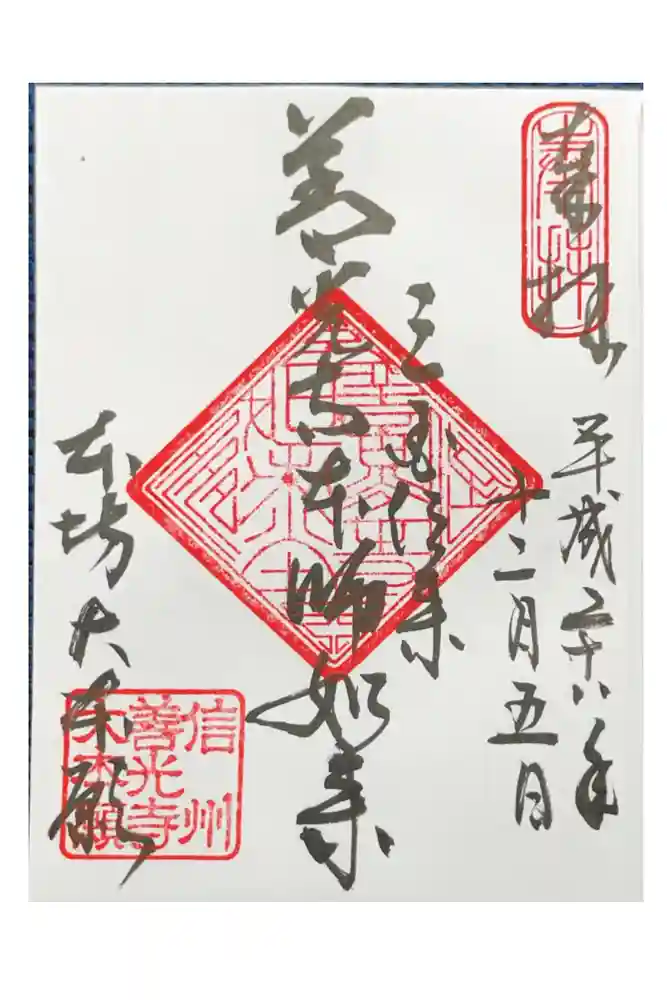 奉拝
平成二十八年
十二月五日
三国伝来
善光寺本師如来
本坊大本願
信州
善光寺
大本願